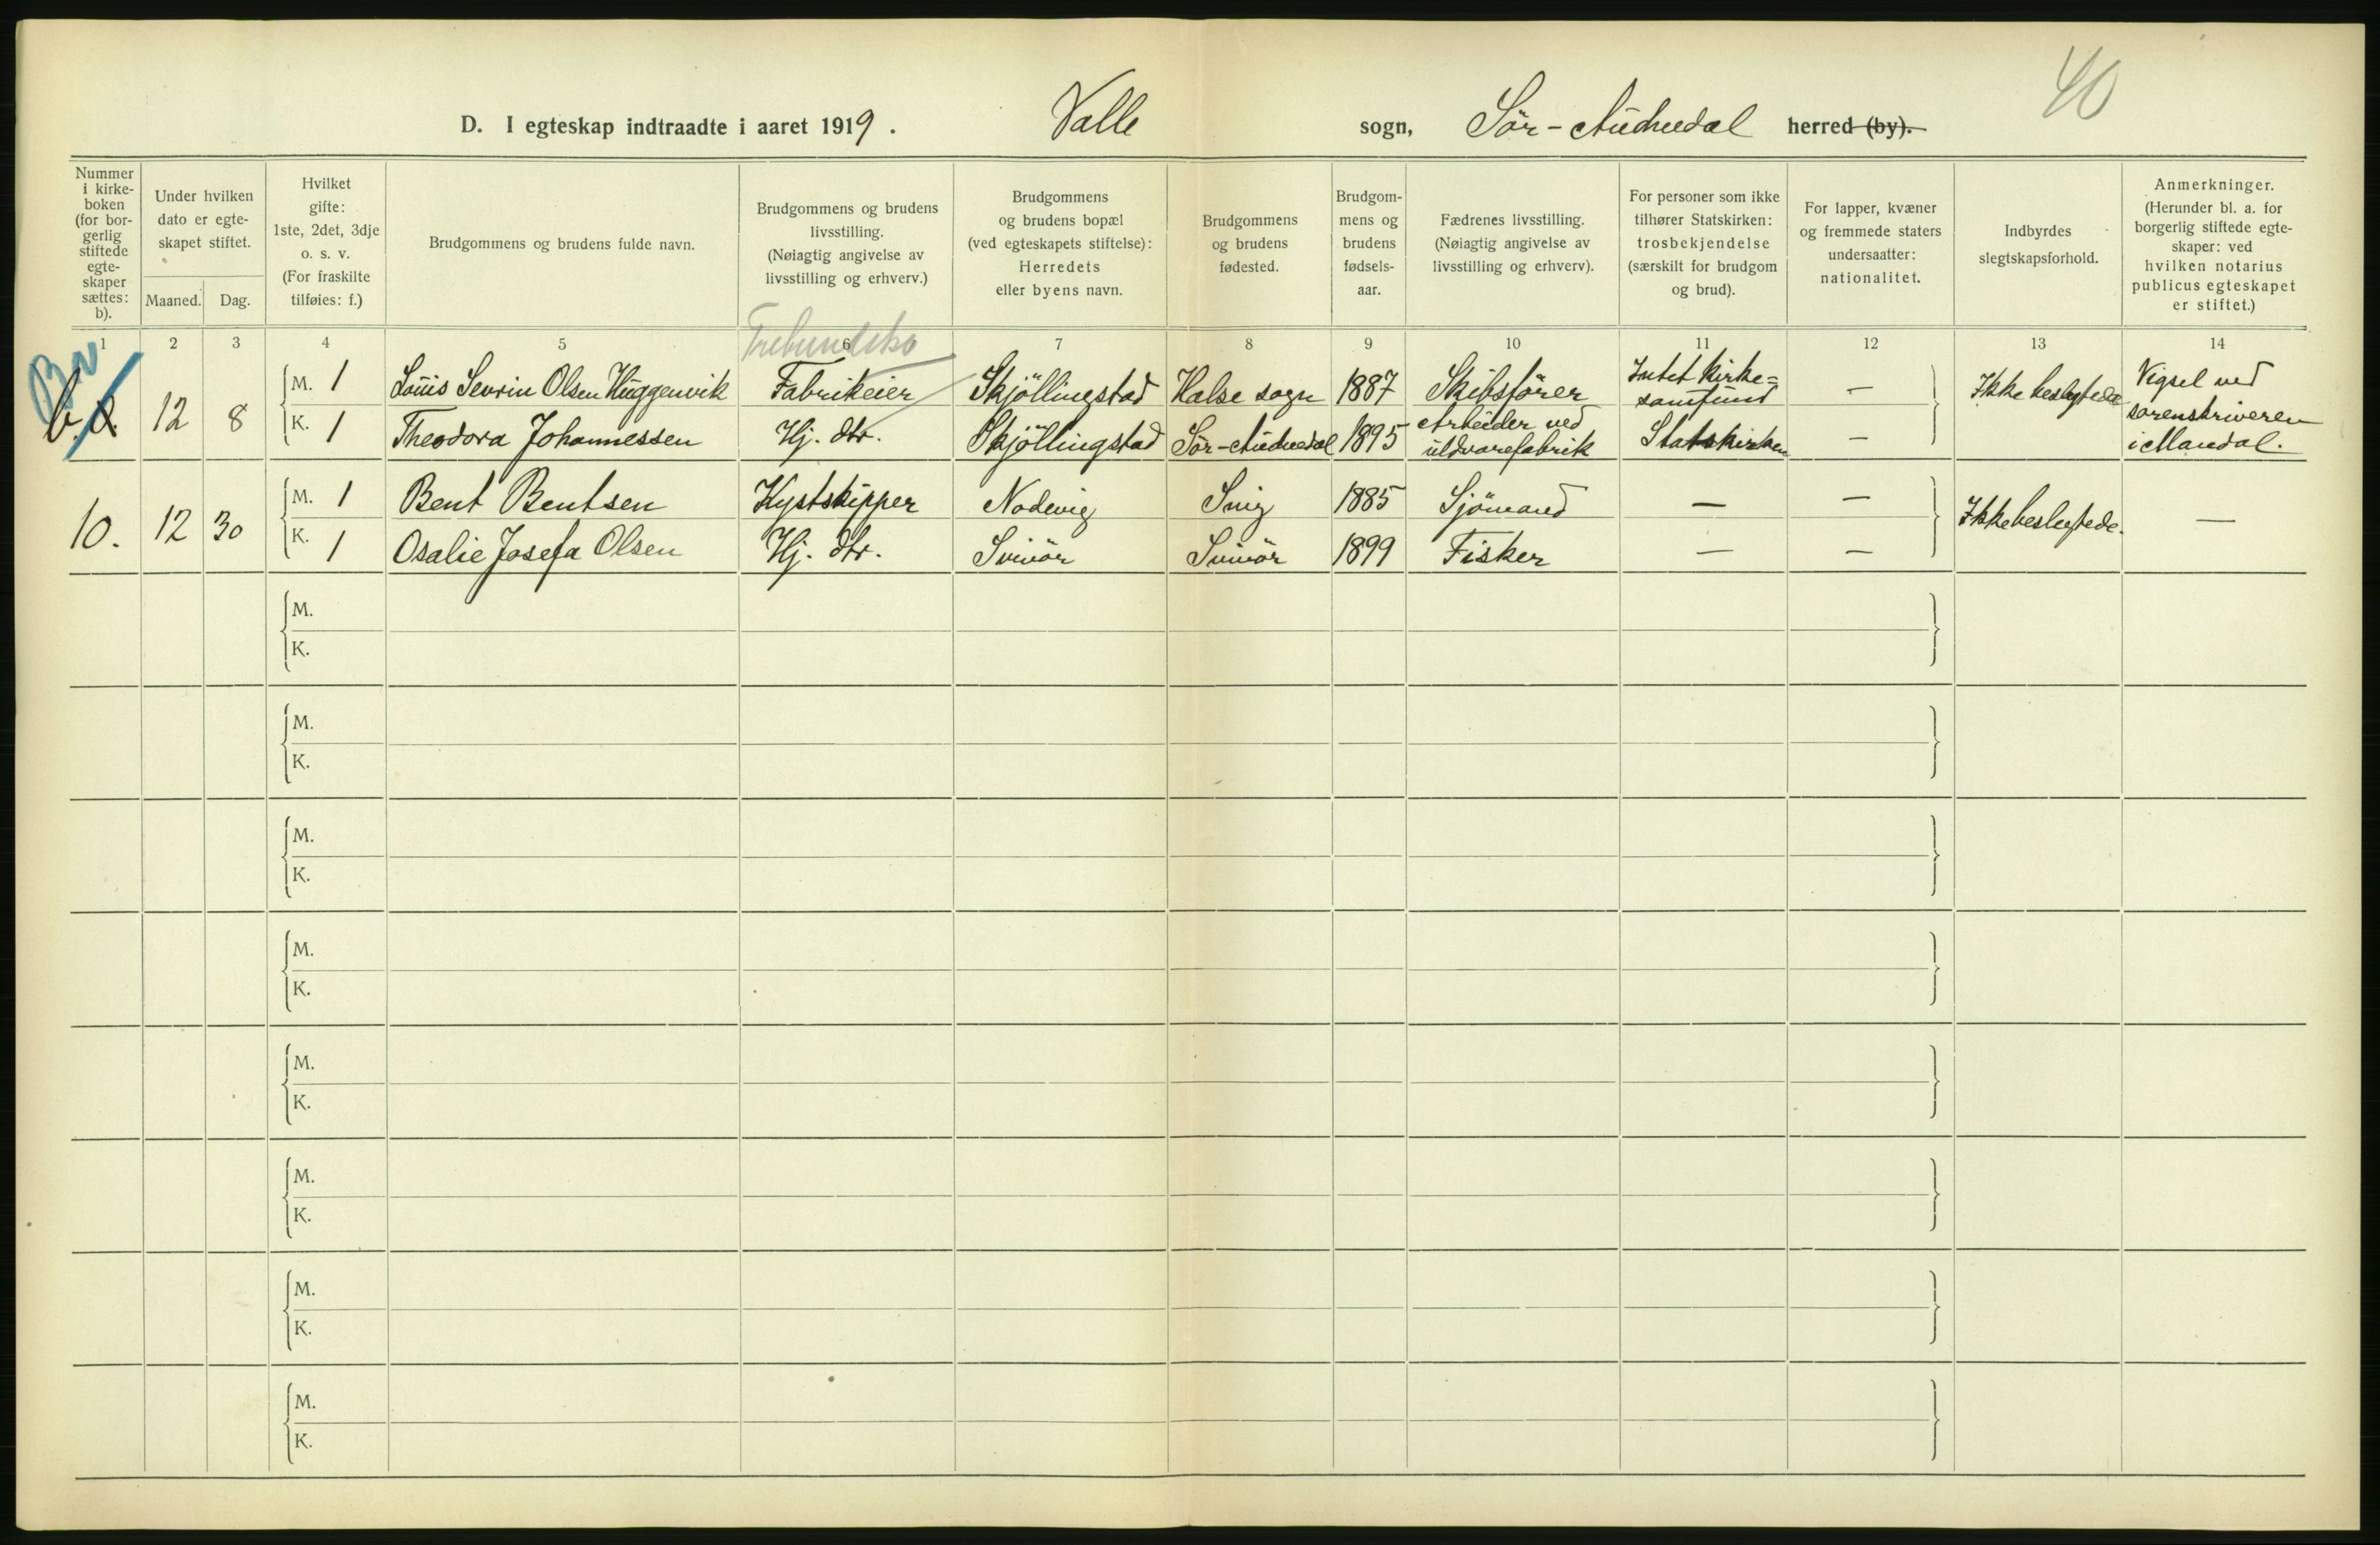 40
D. I egteskap indtraadte i aaret 1919. Valle sogn, Sör-Audnedal herred (by).
Nummer i kirke-boken (for bor-gerlig stiftede egte-skaper sættes: b).
Under hvilken dato er egte-skapet stiftet.
Maaned. Dag.
Hvilket gifte: 1ste, 2det, 3dje o. s. v. (For fraskilte tilføies: f.)
Brudgommens og brudens fulde navn.
Brudgommens og brudens livsstilling. (Nøiagtig angivelse av livsstilling og erhverv.)
Brudgommens og brudens bopæl (ved egteskapets stiftelse): Herredets eller byens navn.
Brudgommens og brudens fødested.
Brudgom-mens og brudens fødsels-aar.
Fædrenes livsstilling. (Nøiagtig angivelse av livsstilling og erhverv).
For personer som ikke tilhører Statskirken: trosbekjendelse (særskilt for brudgom og brud).
For lapper, kvæner og fremmede staters undersaatter: nationalitet.
Indbyrdes slegtskapsforhold.
Anmerkninger. (Herunder bl. a. for borgerlig stiftede egte-skaper: ved hvilken notarius publicus egteskapet er stiftet.)
1 2 3 4 5 6 7 8 9 10 11 12 13 14
b. 12 8
M. 1 Louis Sevrin Olsen Huggenvik Fabrikeier Skjöllingstad Halse sogn 1887 Skibsförer Intet kirke=samfund — Ikke beslegtede Vigsel ved sorenskriveren i Mandal.
K. 1 Theodora Johannessen Hj. dtr. Skjöllingstad Sör-Audnedal 1895 Arbeider ved uldvarefabrik Statskirken —
10. 12 30
M. 1 Bent Bentsen Kystskipper Nodevig Snig 1885 Sjömand — — Ikke beslegtede. —
K. 1 Osalie Josefa Olsen Hj. dtr. Svinör Svinör 1899 Fisker — —
M.
K.
M.
K.
M.
K.
M.
K.
M.
K.
M.
K.
M.
K.
M.
K.